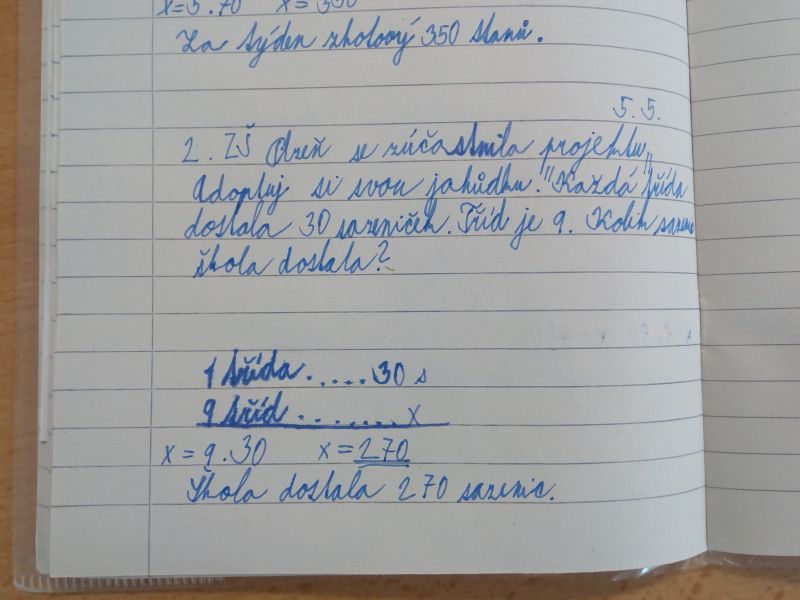 x=5.70 x=350
Za týden zhotový 350 stanů.
5.5.
2. ZŠ Plzeň se zúčastnila projektu
"Adoptuj si svou jahůdku." Každá třída
dostala 30 sazeniček. Tříd je 9. Kolik sazenic
škola dostala?
1 třída.....30 s
9 tříd.......x
x=9.30 x=270
Škola dostala 270 sazenic.